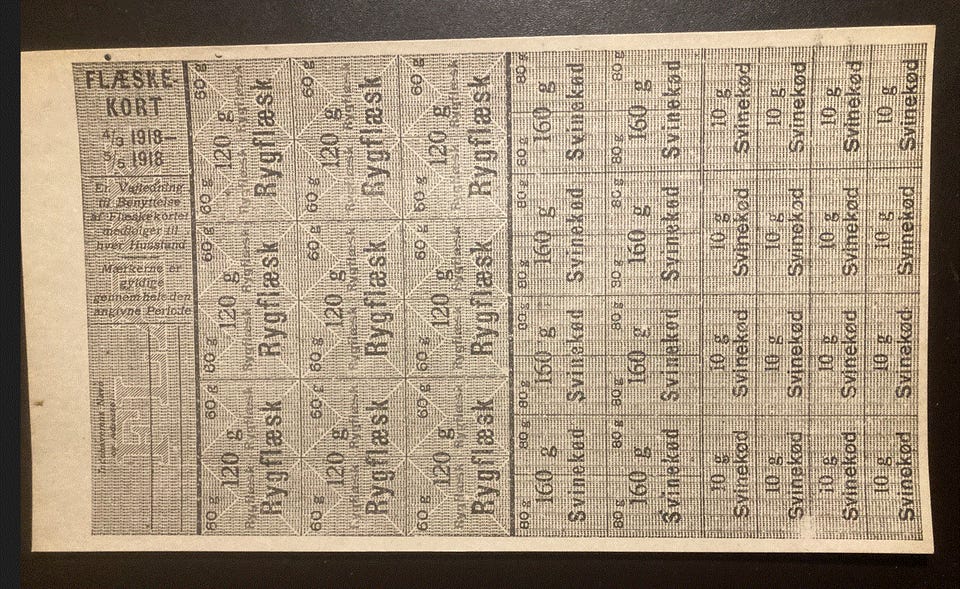 FLÆSKE-
KORT
4/3 1918—
5/5 1918
En Vejledning
til Benyttelse
af Flæskekortet
medfølger til
hver Husstand
Mærkerne er
gyldige
gennem hele den
angivne Periode
60 g 60 g 60 g 60 g 60 g 60 g
120 g 120 g 120 g
Rygflæsk Rygflæsk Rygflæsk Rygflæsk Rygflæsk Rygflæsk
Rygflæsk Rygflæsk Rygflæsk
60 g 60 g 60 g 60 g 60 g 60 g
120 g 120 g 120 g
Rygflæsk Rygflæsk Rygflæsk Rygflæsk Rygflæsk Rygflæsk
Rygflæsk Rygflæsk Rygflæsk
60 g 60 g 60 g 60 g 60 g 60 g
120 g 120 g 120 g
Rygflæsk Rygflæsk Rygflæsk Rygflæsk Rygflæsk Rygflæsk
Rygflæsk Rygflæsk Rygflæsk
80 g 80 g 80 g 80 g 80 g 80 g 80 g 80 g
160 g 160 g 160 g 160 g
Svinekød Svinekød Svinekød Svinekød
80 g 80 g 80 g 80 g 80 g 80 g 80 g 80 g
160 g 160 g 160 g 160 g
Svinekød Svinekød Svinekød Svinekød
10 g 10 g 10 g 10 g
Svinekød Svinekød Svinekød Svinekød
10 g 10 g 10 g 10 g
Svinekød Svinekød Svinekød Svinekød
10 g 10 g 10 g 10 g
Svinekød Svinekød Svinekød Svinekød
10 g 10 g 10 g 10 g
Svinekød Svinekød Svinekød Svinekød